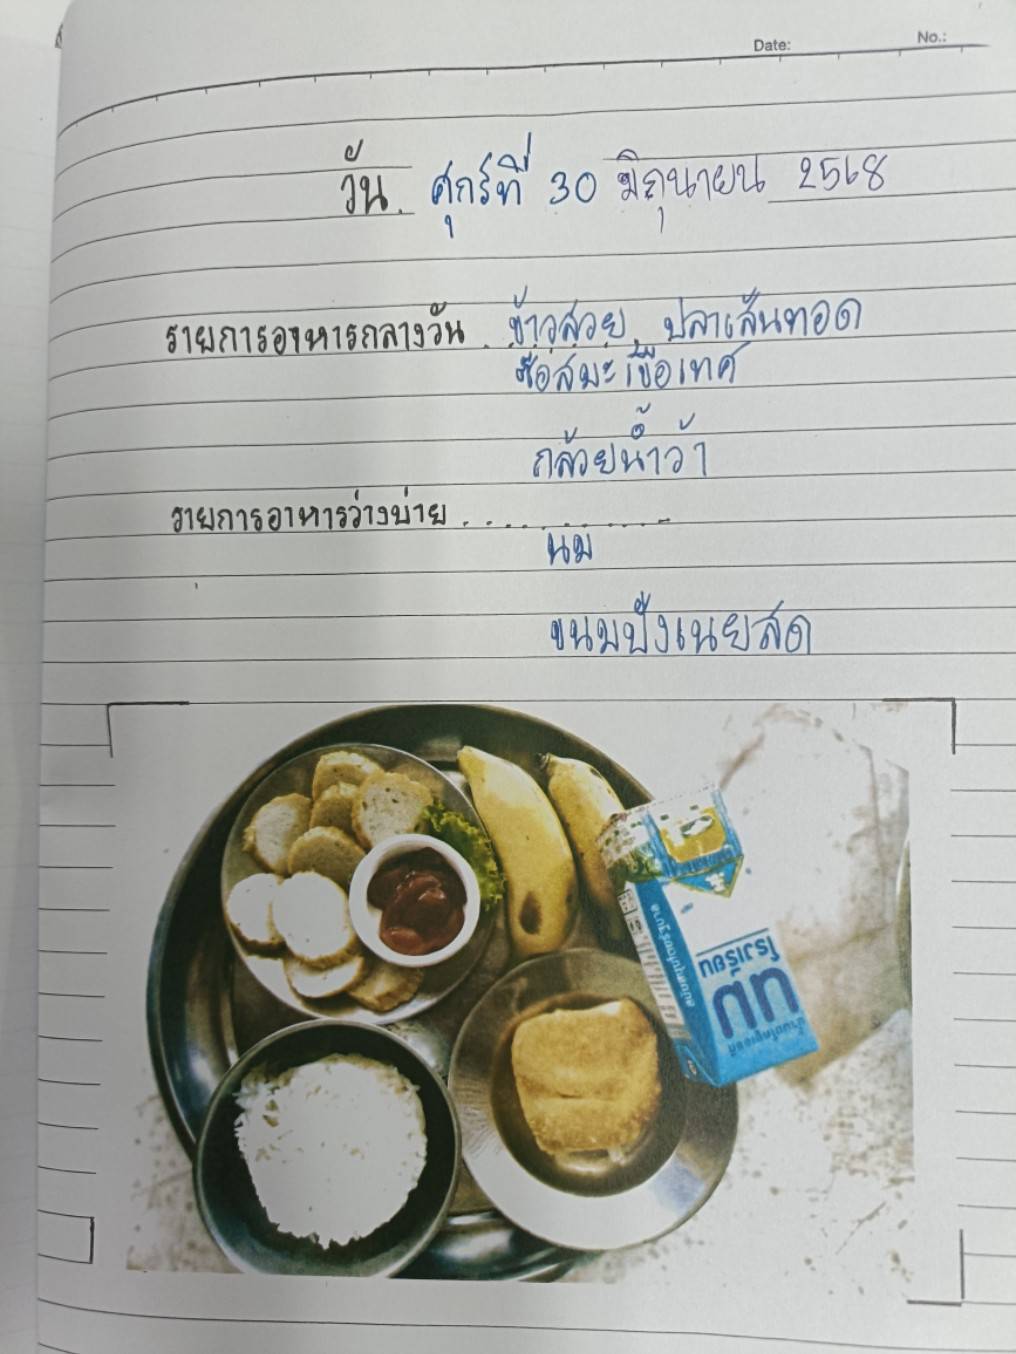 Date:
No.:
วัน. ศุกร์ที่ 30 มิถุนายน 2568
รายการอาหารกลางวัน . ข้าวสวย. ปลาเส้นทอด
ซอสมะเขือเทศ
กล้วยน้ำว้า
รายการอาหารว่างบ่าย ............
นม
ขนมปังเนยสด
นม
โรงเรียน